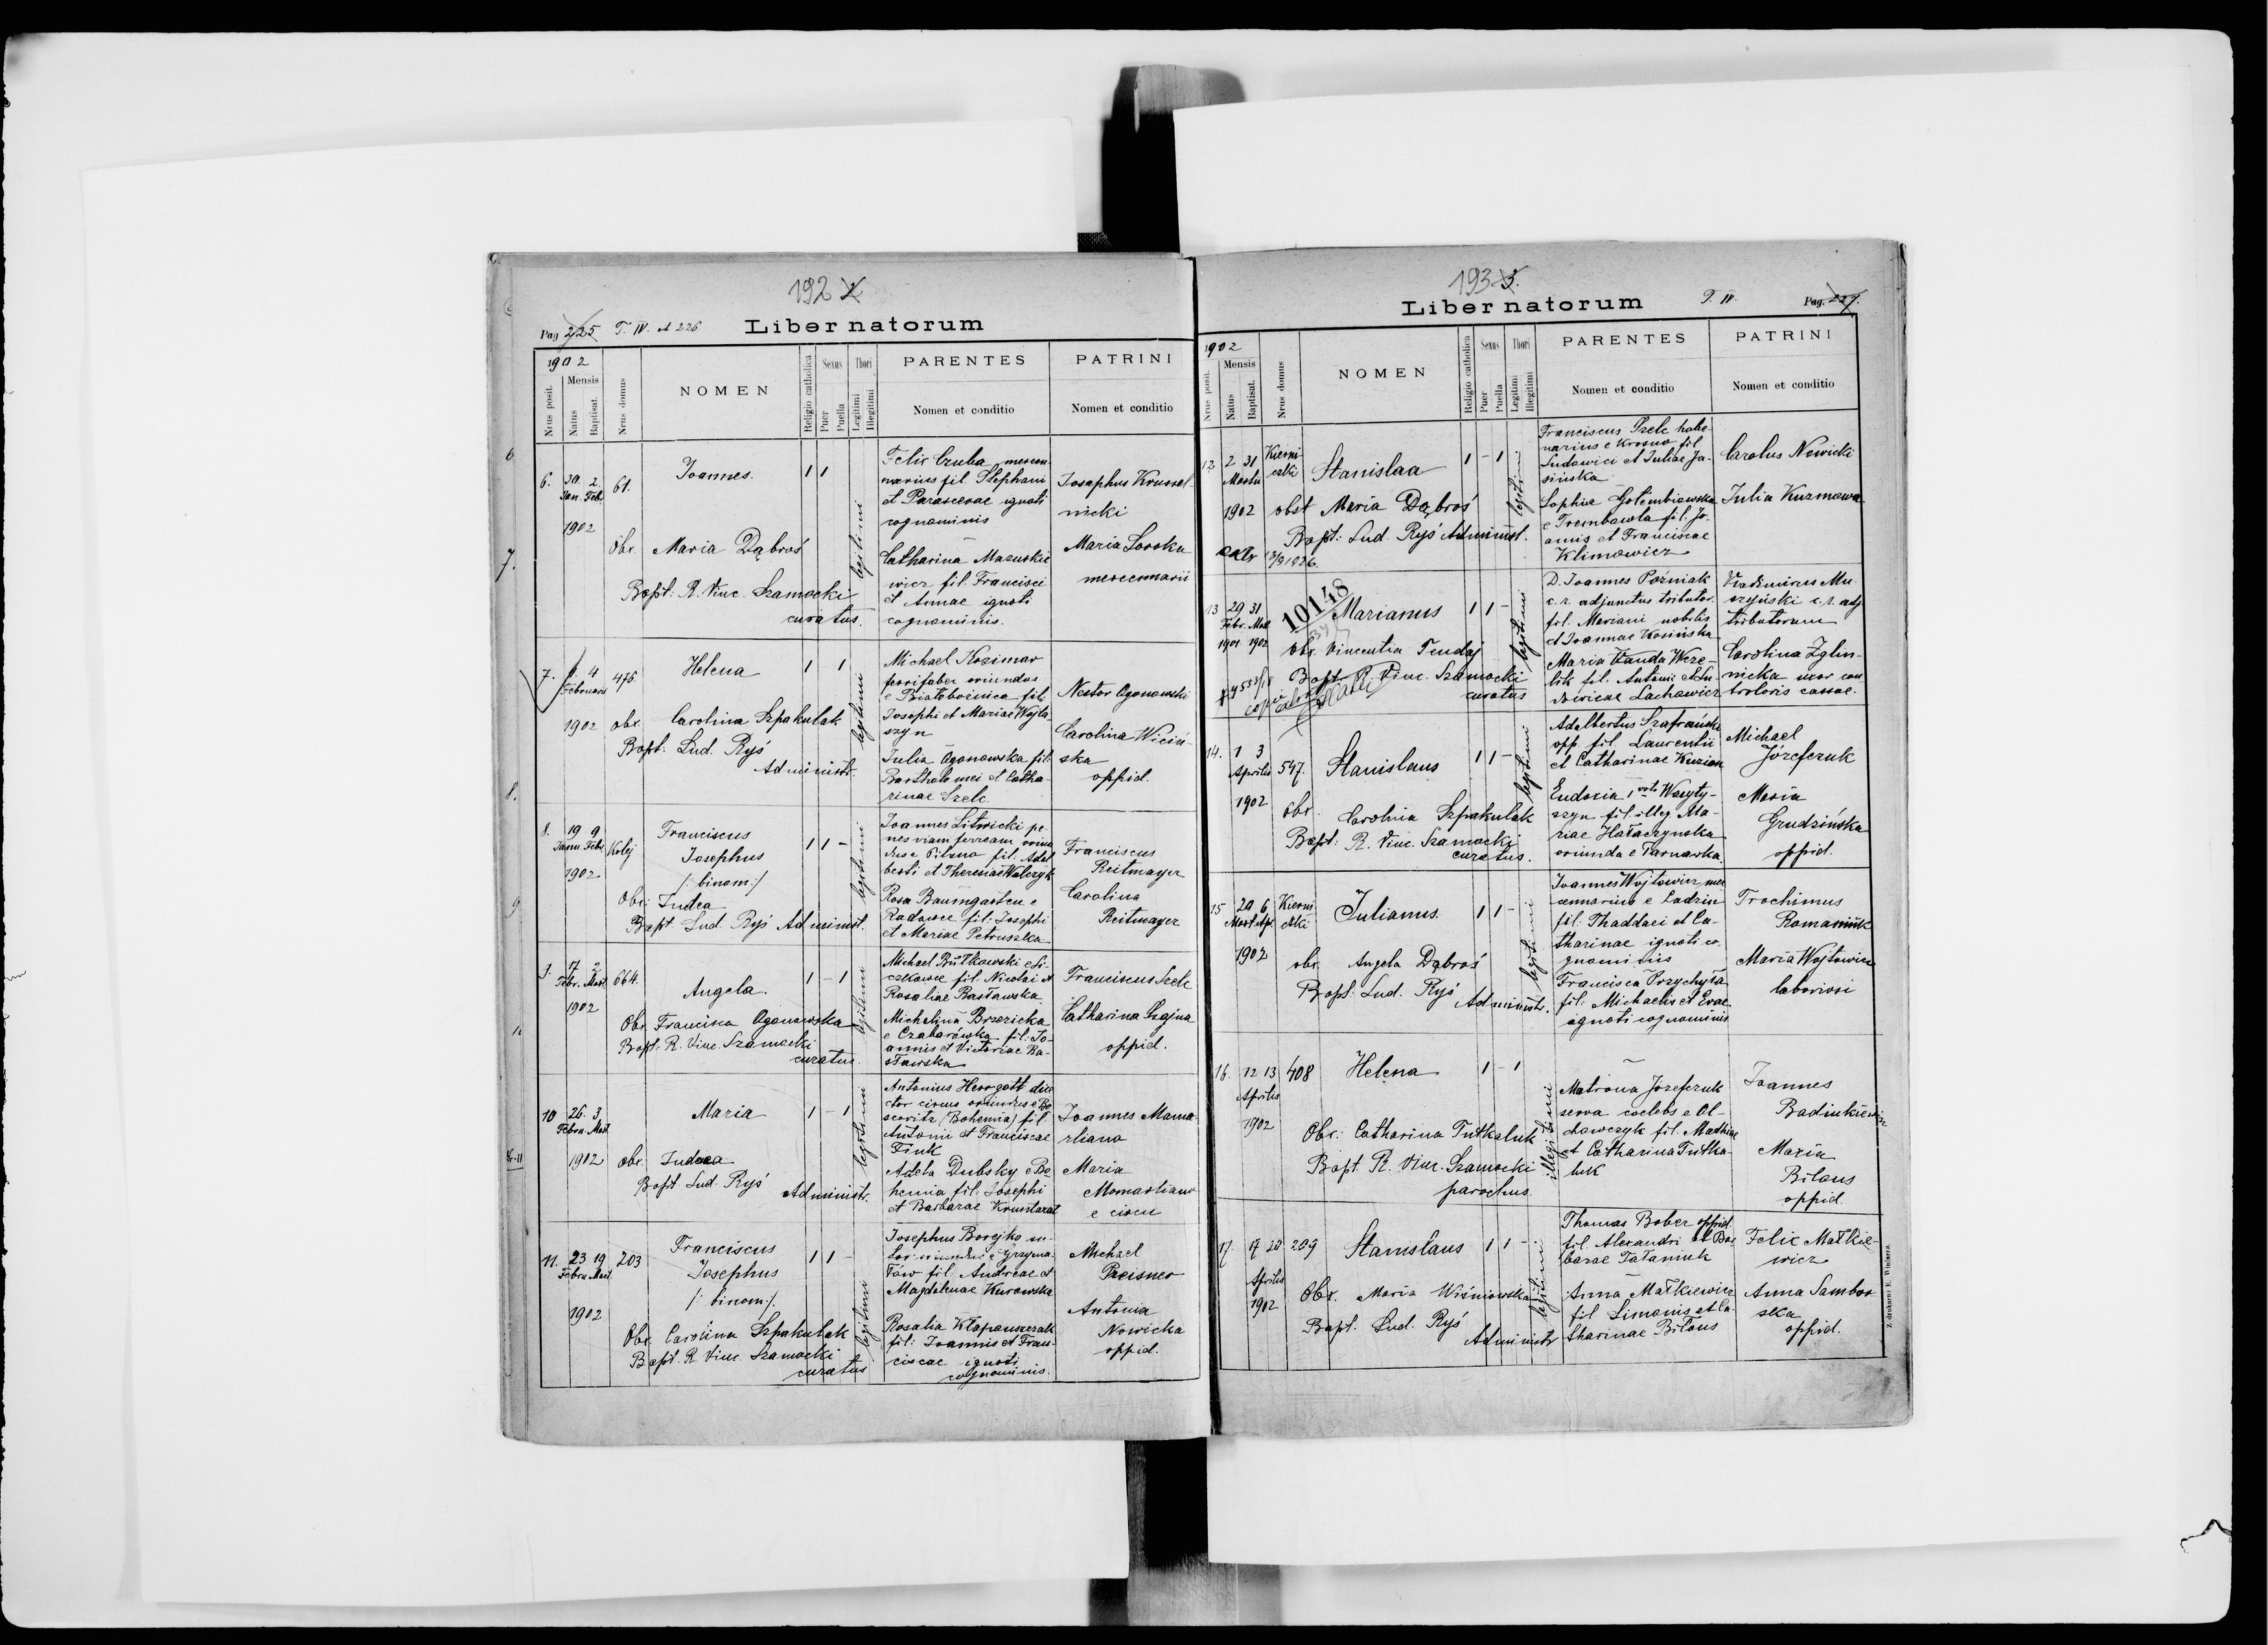 192
Pag 225 T. IV. A 226 Liber natorum
1902
Nrus posit.
Mensis
Natus
Baptisat.
Nrus domus
NOMEN
Religio catholica
Sexus
Puer
Puella
Thori
Legitimi
Illegitimi
PARENTES
Nomen et conditio
PATRINI
Nomen et conditio
6
6. 30. 2. 61. Joannes. 1 1
Jan. Feb.
1902
Obs. Maria Dąbroś
Bapt. R. Vinc. Szamocki
curatus.
legitimi
Felix Czuba mercen
narius fil. Stephani
et Parascevae ignoti
cognominis
Catharina Mazurkie
wicz fil. Francisci
et Annae ignoti
cognominis.
Josephus
nicki
Maria Soroka
mercennarii
7.
7. 4 476. Helena 1 1
Februarii
1902 obs. Carolina Szpakulak
Bapt. Lud. Ryś
Administr.
legitimi
Michael Kozimar
ferrifaber oriundus
e Białobożnica fil.
Josephi et Mariae Wojta
szyn
Julia Ogonowska fil.
Bartholomei et Catha
rinae Szelc
Nestor Ogonowski
Carolina Wiciń-
ska
oppid.
8.
8. 19 9 Kolej Franciscus 1 1 -
Janu. Febr. Josephus
1902 /: binom:/
Obs. Judea
Bapt. Lud. Ryś Administ.
legitimi
Joannes Litwicki pe
nes viam ferream oriun
dus e Pilzno fil. Adal
berti et Theresiae Walczyk
Rosa Baumgarten e
Radowce fil. Josephi
et Mariae Petruszka
Franciscus
Reitmayer
Carolina
Reitmayer
9
9. 17 2 664. Angela. 1 - 1
Febr. Mart.
1902
Obs. Francisca Ogonowska
Bapt. R. Vinc. Szamocki
curatus.
legitimi
Michael Butkowski e Li-
czkowce fil. Nicolai et
Rosaliae Basławska
Michalina Brzezicka
e Czabarówka fil. Jo-
annis et Victoriae Ba-
sławska
Franciscus Szelc
Catharina Szajna
oppid.
10
10 26. 3. Maria 1 - 1
Febru. Mart.
1902 obs. Judaea
Bapt Lud. Ryś
Administr.
legitimi
Antonius Herrgott dire
ctor circus oriundus e Bo
scovitz (Bohemia) fil.
Antonii et Franciscae
Fink
Adela Dubsky e Bo
hemia fil. Josephi
et Barbarae
Joannes Moma
rliano
Maria
Momarliano
e circu
11. 23 19 203 Franciscus 1 1 -
Febru. Mart. Josephus
/: binom:/.
1902
Obs. Carolina Szpakulak
Bapt. R. Vinc. Szamocki
curatus
legitimi
Josephus Borejko su-
tor oriundus e Grzyma-
łów fil. Andreae et
Magdalenae Kurowska
Rosalia Kłapouszczak
fil: Joannis et Fran-
ciscae ignoti
cognominis.
Michael
Preisner
Antonia
Nowicka
oppid.
193
Liber natorum T. IV. Pag. 227.
1902
Nrus posit.
Mensis
Natus
Baptisat.
Nrus domus
NOMEN
Religio catholica
Sexus
Puer
Puella
Thori
Legitimi
Illegitimi
PARENTES
Nomen et conditio
PATRINI
Nomen et conditio
12. 2 31 Kierni Stanislaa 1 - 1
Martii czki
1902 obst Maria Dąbroś
Bapt: Lud. Ryś Administ.
13/9 1926.
legitimi
Franciscus Szelc
e Krosno fil.
Ludovici et Juliae Ja-
sińska
Sophia Gołembiowska
e Trembowla fil. Jo-
annis et Franciscae
Klimowicz
Carolus Nowicki
Julia Kuzmowa
13 29 31 10148 Marianus 1 1 -
Febr. Mart.
1901 1902 Obs. Vincentia Tendaj
Bapt. R. Vinc. Szamocki
curatus
legitimi
D. Joannes Poźniak
c. r. adjunctus tributor.
fil. Mariani nobilis
et Joannae Kosińska
Maria Wanda Weze-
lik fil. Antonii et Lu-
dovicae Lachowicz
Vladimirus Mu
szyński c. r. adj.
tributorum
Carolina Zglin-
nicka uxor con
troloris cassae.
14. 1 3 547. Stanislaus 1 1 -
Aprilis
1902 Obs. Carolina Szpakulak
Bapt. R. Vinc. Szamocki
curatus.
legitimi
Adalbertus Szafrański
opp. fil. Laurentii
et Catharinae Kuziak
Eudoxia 1 voto Wasyty-
szyn fil. illeg. Ma-
riae Hałaczynska
oriunda e Tarnawka.
Michael
Józefczuk
Maria
Grudzińska
oppid.
15 20 6 Kierni Julianus. 1 1 -
Mart. Apr. czki
1902 obs. Angela Dąbroś
Bapt. Lud. Ryś
Administr.
legitimi
Joannes Wojtowicz mer
cennarius e Ladzin
fil. Thaddaei et Ca-
tharinae ignoti co
gnominis
Francisca Przychyła
fil: Michaelis et Evae
ignoti cognominis
Trochimus
Romaniuk
Maria Wojtowicz
laboriosi
16. 12 13 408 Helena 1 - 1
Aprilis
1902 Obs: Catharina Tutkaluk
Bapt. R. Vinc. Szamocki
parochus.
illegitimi
Matrona Józefczuk
serva coelebs e Ol-
dowczyk fil. Mathiae
et Catharina Tutka
luk
Joannes
Badiukiewicz
Maria
Bilous
oppid.
17. 17 20 209 Stanislaus 1 1 -
Aprilis
1902 Obs. Maria Wiśniowska
Bapt. Lud. Ryś
Administr
legitimi
Thomas Bober oppid.
fil. Alexandri et Bar
barae Tataniuk
Anna Małkiewicz
fil Simonis et Ca
tharinae Biłous
Felix Małkie-
wicz
Anna Sambor
ska
oppid.
Z drukarni E. Winiarza.